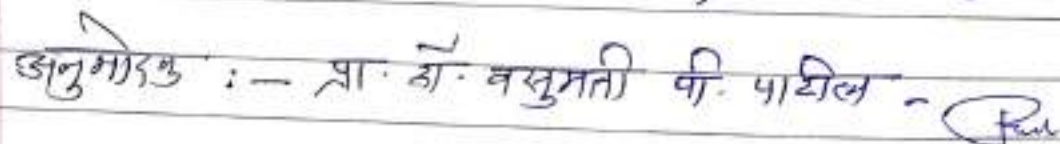 अनुमोदक :- प्रा. डॉ. वसुमती पी. पाटील -